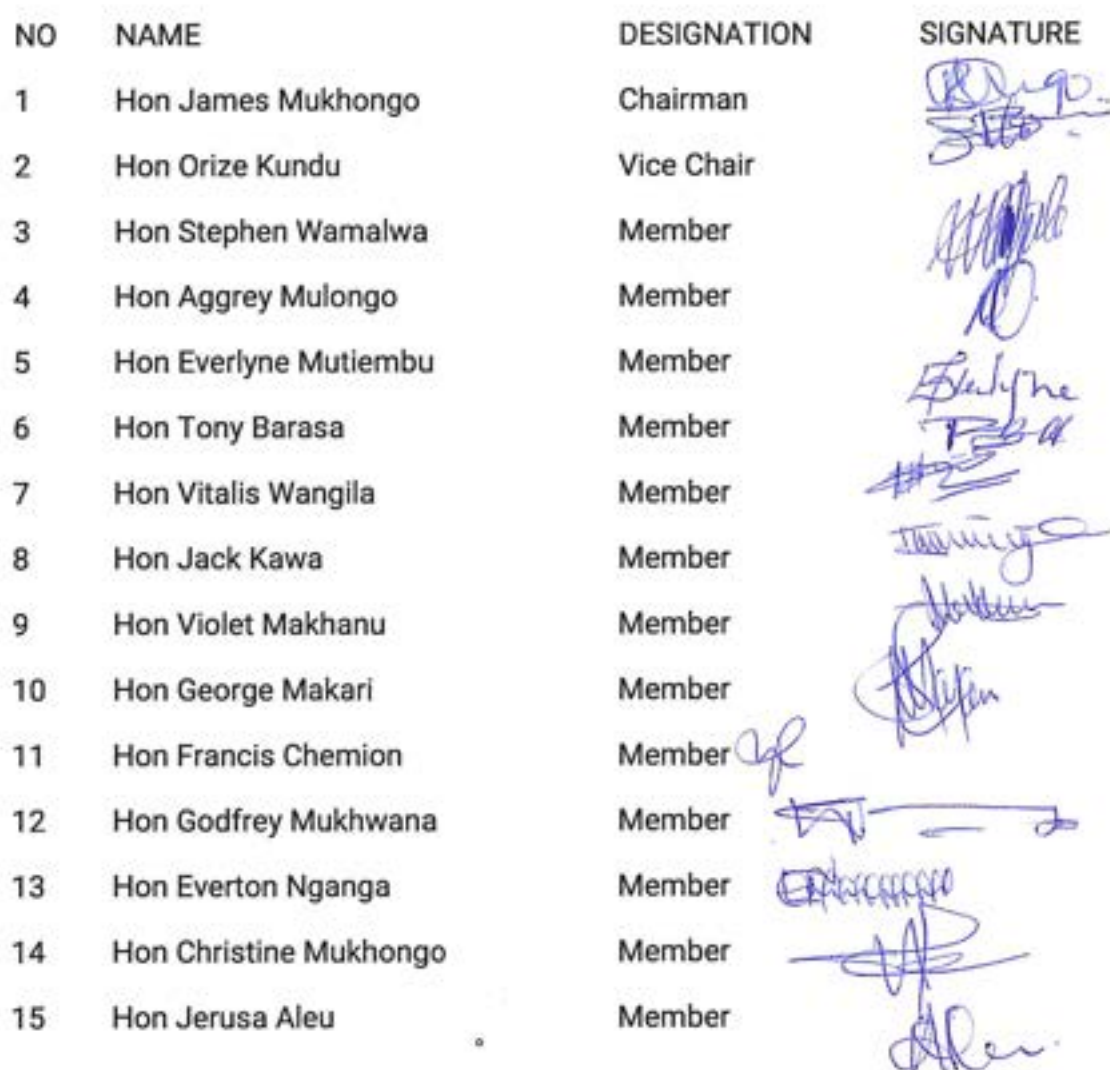 NO NAME DESIGNATION SIGNATURE
1 Hon James Mukhongo Chairman
2 Hon Orize Kundu Vice Chair
3 Hon Stephen Wamalwa Member
4 Hon Aggrey Mulongo Member
5 Hon Everlyne Mutiembu Member Everlyne
6 Hon Tony Barasa Member
7 Hon Vitalis Wangila Member
8 Hon Jack Kawa Member
9 Hon Violet Makhanu Member
10 Hon George Makari Member
11 Hon Francis Chemion Member
12 Hon Godfrey Mukhwana Member
13 Hon Everton Nganga Member
14 Hon Christine Mukhongo Member
15 Hon Jerusa Aleu Member